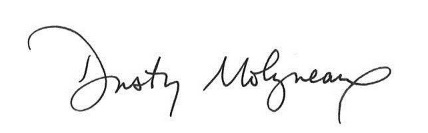 Dusty Molyneaux